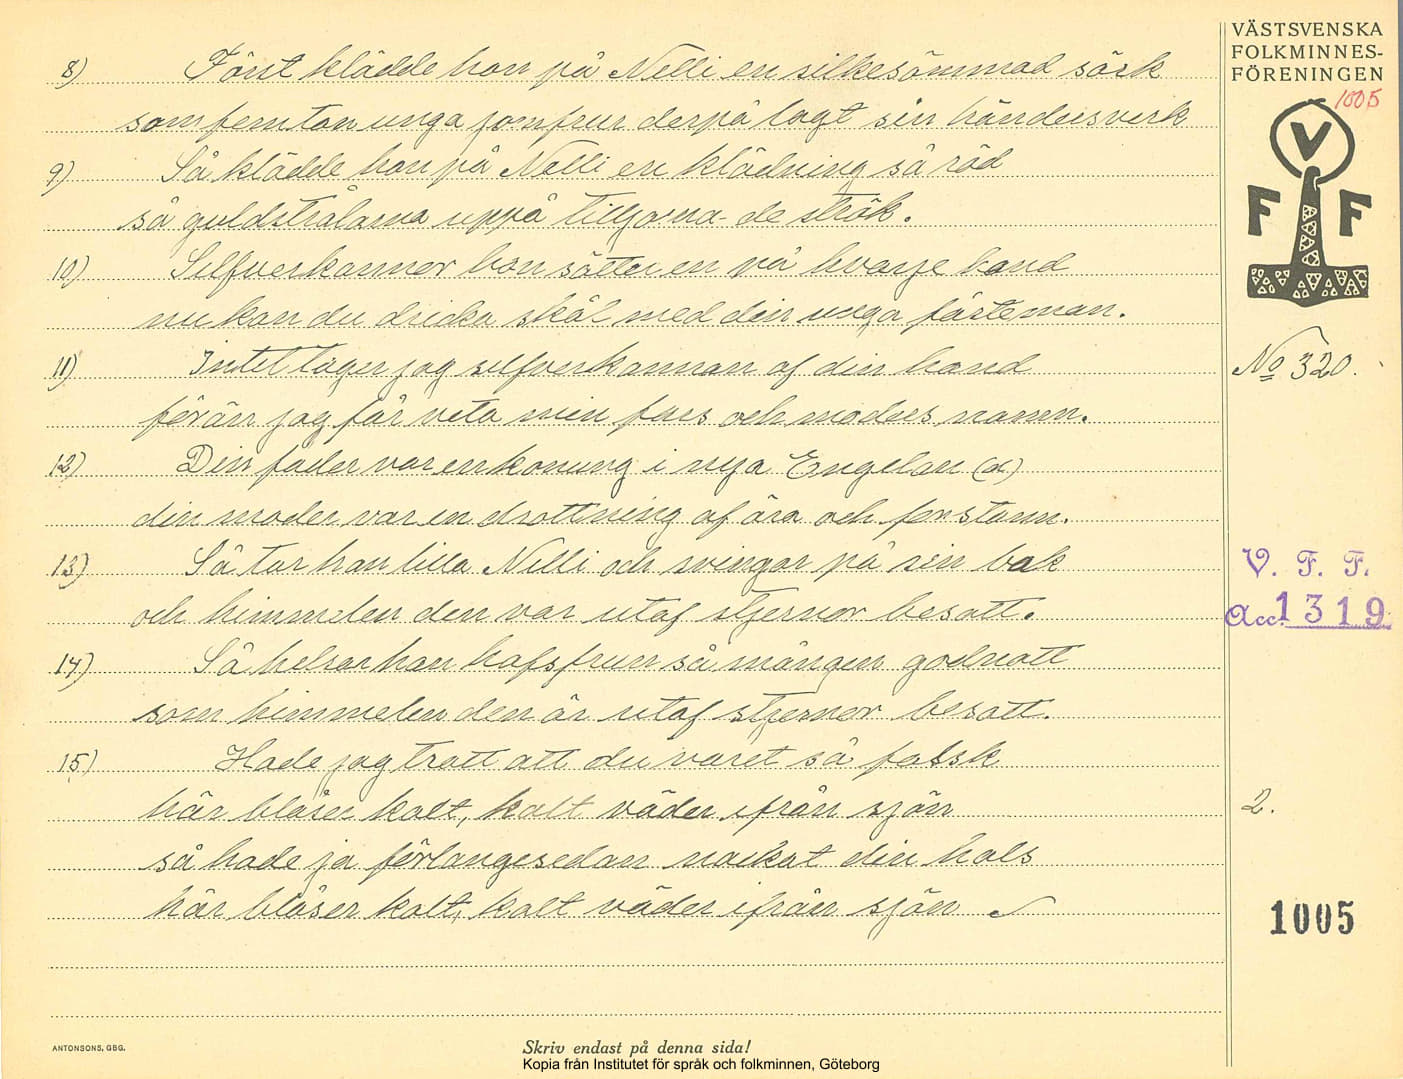 VÄSTSVENSKA
FOLKMINNES-
FÖRENINGEN
1005
V
F F
8) Först klädde hon på Nelli en silkesömmad särk
som femton unga jomfrur derpå lagt sin händersverk
9) Så klädde hon på Nelli en klädning så röd
så guldstrålarna uppå tilljorna de strök.
10) Silfverkannor hon sätter en på hvarje hand
nu kan du dricka skål med din unga fästeman.
11) Intet tager jag silfverkannan af din hand
förän jag får veta min fars och moders namn.
12) Din fader var en konung i nya Engelan (d)
din moder var en drottning af ära och forstann.
13) Så tar han lilla Nelli och svingar på sin bak
och himmelen den var utaf stjernor besatt.
14) Så helsar han hafsfrun så mången godnatt
som himmelen den är utaf stjernor besatt.
15) Hade jag trott att du varet så falsk
här blåser kalt, kalt väder ifrån sjön
så hade ja förlangesedan nackat din hals
här bläser kalt, kalt väder ifrån sjön
No 320.
V. F. F.
Acc. 1319
2.
1005
ANTONSONS, GBG.
Skriv endast på denna sida!
Kopia från Institutet för språk och folkminnen, Göteborg